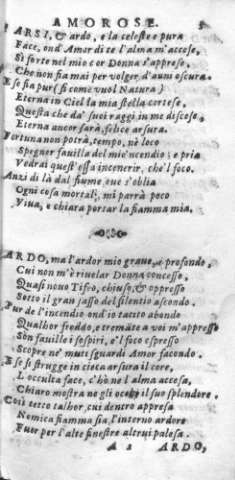 AMOROSE. 5
ARSI, & ardo, e la celeste e pura
Face, ond'Amor di te l'alma m'accese,
Si forte nel mio cor Donna s'apprese,
Che non fia mai per volger d'anni oscura.
E se fia pur (si come vuol Natura)
Eterna in Ciel la mia stella cortese,
Questa che da' suoi raggi in me discese,
Eterna ancor sarà, felice arsura.
Fortuna non potrà, tempo, nè loco
Spegner favilla del mio'ncendio; e pria
Vedrai quest'essa incenerir, che'l foco.
Anzi di là dal fiume, oue s'oblia
Ogni cosa mortal, mi parrà poco
Viua, e chiara portar la fiamma mia.
ARDO, ma l'ardor mio graue, e profondo,
Cui non m'è riuelar Donna concesso,
Quasi nouo Tifeo, chiuso, & oppresso
Sotto il gran sasso del silentio ascondo.
Pur de l'incendio ond'io tacito abondo
Qualhor freddo, e tremãte a voi m'appresso
Son fauille i sospiri, e'l foco espresso
Scopre ne' muti sguardi Amor facondo.
E se si strugge in cieca arsura il core,
L'occulta face, c'hò ne l'alma accesa,
Chiaro mostra ne gli occhi il suo splendore.
Così tetto talhor, cui dentro appresa
Nemica fiamma sia, l'interno ardore
Fuor per l'alte finestre altrui palesa.
A 3 ARDO,